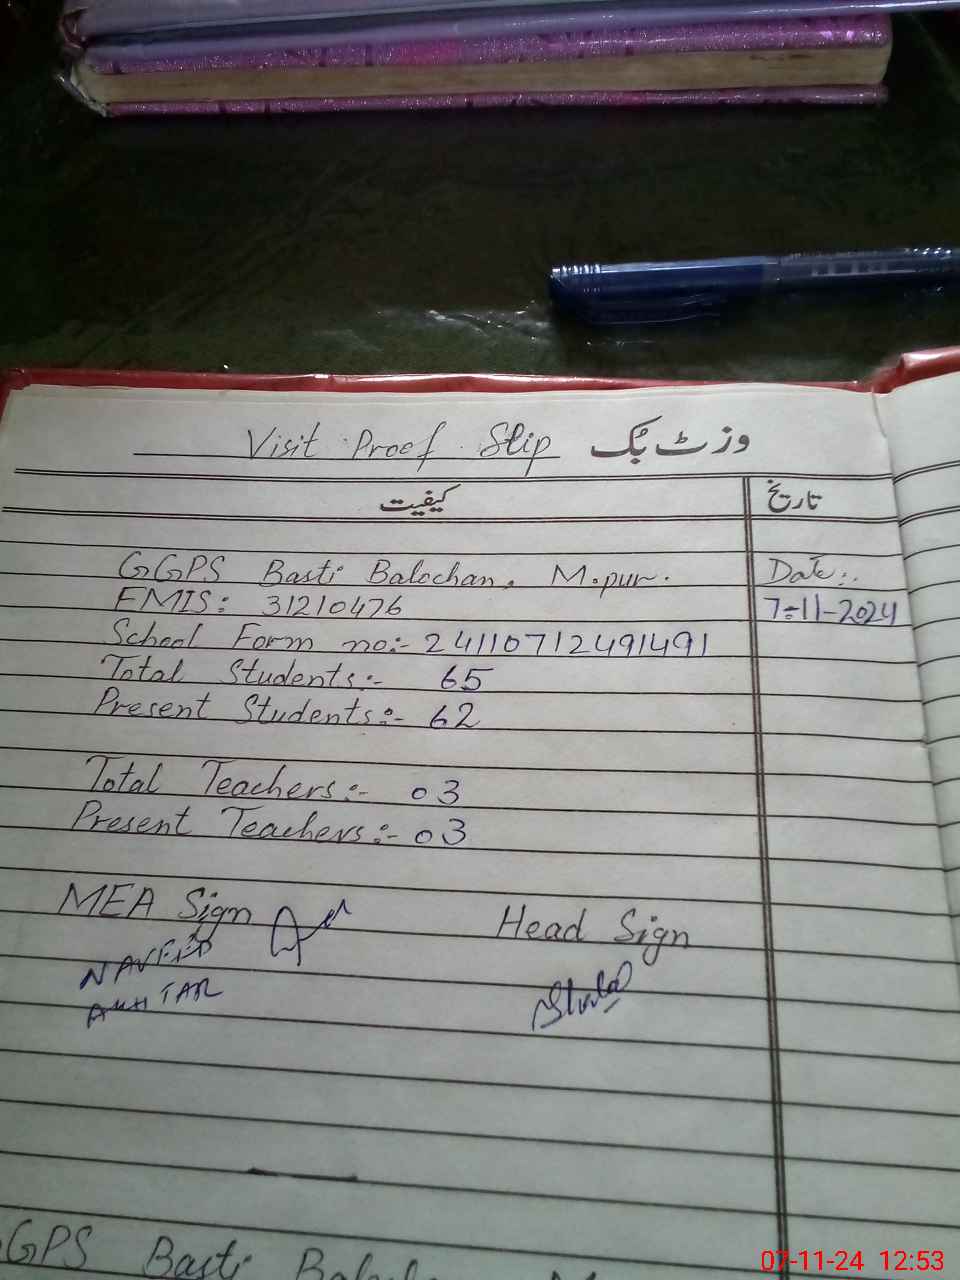 Visit Proof Slip وزٹ بُک
کیفیت تاریخ
GGPS Basti Balochan, M.pur. Date:.
EMIS: 31210476 7-11-2024
School Form no:- 24110712491491
Total Students:- 65
Present Students:- 62
Total Teachers:- 03
Present Teachers:- 03
MEA Sign Head Sign
NAVEED
AKHTAR
GGPS Basti
07-11-24 12:53